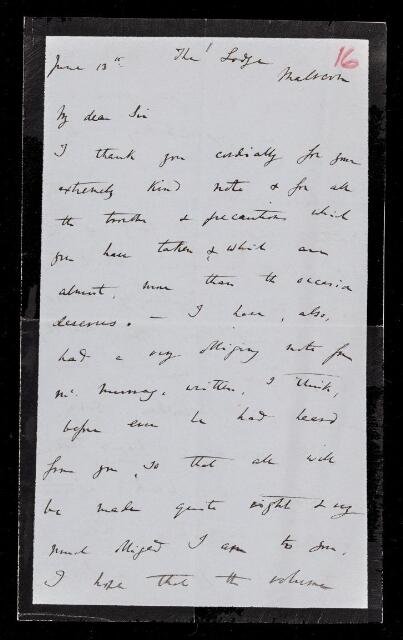 16
June 13th The Lodge
Malvern
My dear Sir
I thank you cordially for your
extremely kind note & for all
the trouble & precautions which
you have taken & which are
almost more than the occasion
deserves. — I have, also,
had a very obliging note from
Mr. Murray, written, I think,
before even he had heard
from you, so that all will
be made quite right & very
much obliged I am to you.
I hope that the volume